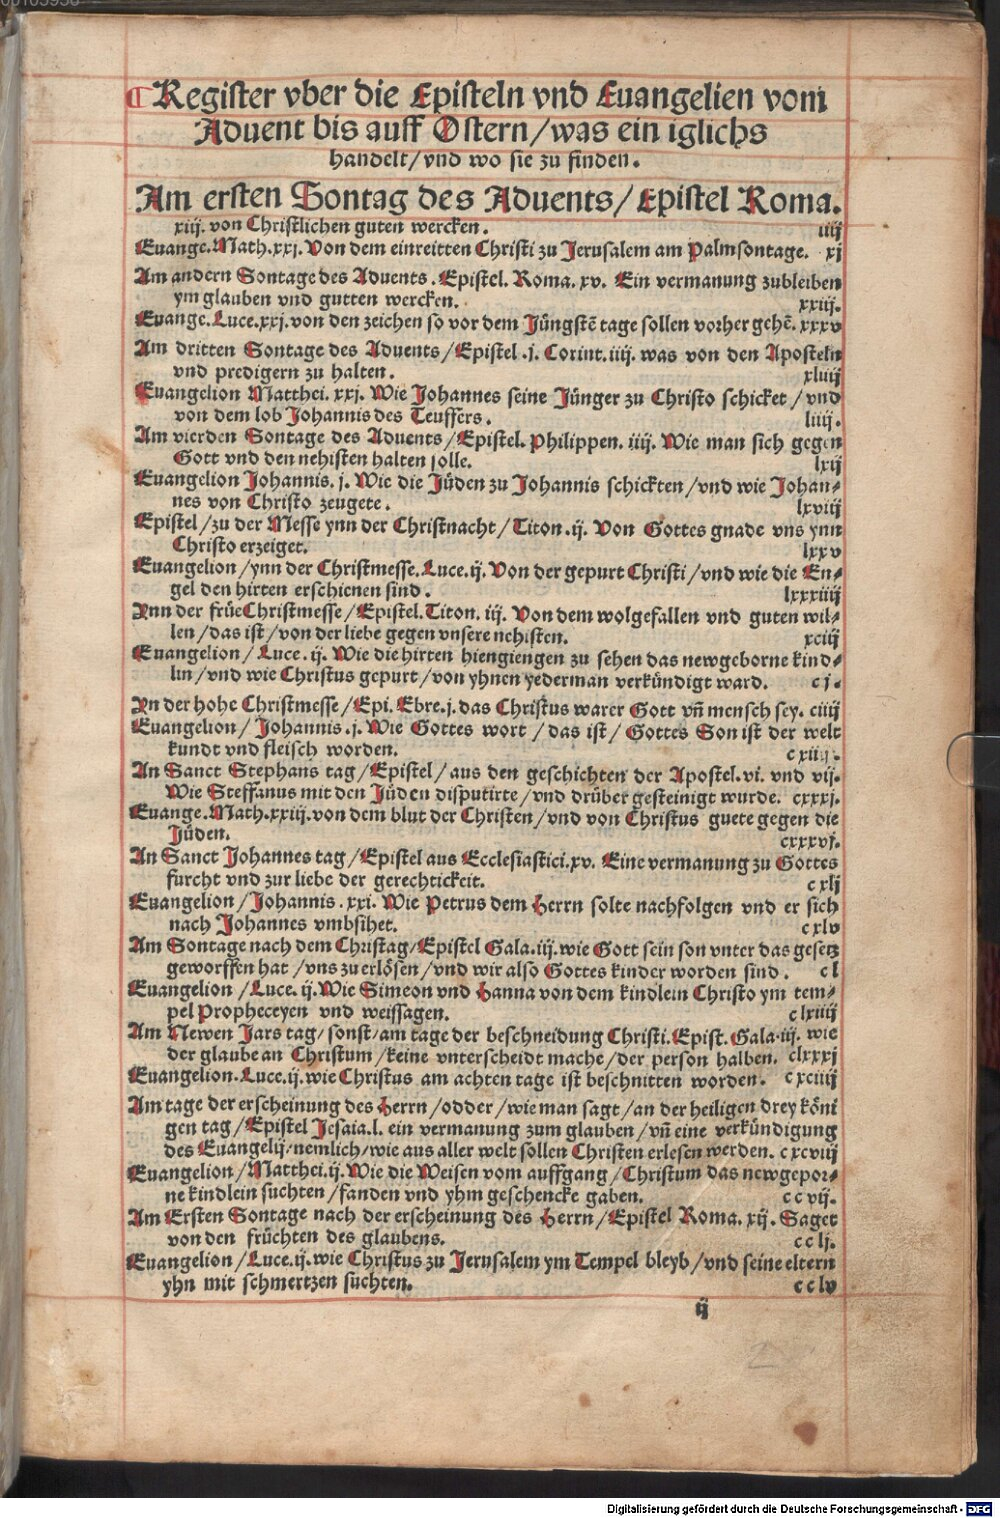 Register vber die Episteln vnd Euangelien vom
Aduent bis auff Ostern/was ein iglichs
handelt/vnd wo sie zu finden.
Am ersten Sontag des Aduents/Epistel Roma.
xiij. von Christlichen guten wercken. iiij
Euange.Math.xxj.Von dem einreitten Christi zu Jerusalem am Palmsontage. xj
Am andern Sontage des Aduents.Epistel.Roma.xv. Ein vermanung zubleiben
ym glauben vnd gutten wercken. xxiij.
Euange.Luce.xxj.von den zeichen so vor dem Jüngstē tage sollen vorher gehē.xxxv
Am dritten Sontage des Aduents/Epistel.j.Corint.iiij. was von den Aposteln
vnd predigern zu halten. xluiij
Euangelion Matthei.xxj. Wie Johannes seine Jünger zu Christo schicket/vnd
von dem lob Johannis des Teuffers. liiij.
Am vierden Sontage des Aduents/Epistel.Philippen.iiij. Wie man sich gegen
Gott vnd den nehisten halten solle. lxij
Euangelion Johannis.j. Wie die Jüden zu Johannis schickten/vnd wie Johan-
nes von Christo zeugete. lxviij
Epistel/zu der Messe ynn der Christnacht/Titon.ij. Von Gottes gnade vns ynn
Christo erzeiget. lxxv
Euangelion/ynn der Christmesse.Luce.ij.Von der gepurt Christi/vnd wie die En-
gel den hirten erschienen sind. lxxxiiij
Inn der früe Christmesse/Epistel.Titon.iij. Von dem wolgefallen vnd guten wil-
len/das ist/von der liebe gegen vnsere nehisten. xciij
Euangelion/Luce.ij. Wie die hirten hiengiengen zu sehen das newgeborne kind-
lin/vnd wie Christus gepurt/von yhnen yederman verkündigt ward. cj.
In der hohe Christmesse/Epi.Ebre.j.das Christus warer Gott vñ mensch sey. ciiij
Euangelion/Johannis.j. Wie Gottes wort/das ist/Gottes Son ist der welt
kundt vnd fleisch worden. cxiij.
An Sanct Stephans tag/Epistel/aus den geschichten der Apostel.vi. vnd vij.
Wie Steffanus mit den Jüden disputirte/vnd drüber gesteinigt wurde. cxxxj.
Euange.Math.xxiij.von dem blut der Christen/vnd von Christus guete gegen die
Jüden. cxxxvj.
An Sanct Johannes tag/Epistel aus Ecclesiastici.xv. Eine vermanung zu Gottes
furcht vnd zur liebe der gerechtickeit. cxlj
Euangelion/Johannis.xxi. Wie Petrus dem Herrn solte nachfolgen vnd er sich
nach Johannes vmbsihet. cxlv
Am Sontage nach dem Christag/Epistel Gala.iij.wie Gott sein son vnter das gesetz
geworffen hat/vns zu erlösen/vnd wir also Gottes kinder worden sind. cl
Euangelion/Luce.ij.Wie Simeon vnd Hanna von dem kindlein Christo ym tem-
pel Propheceyen vnd weissagen. clxiiij
Am Newen Jars tag/sonst/am tage der beschneidung Christi.Epist.Gala.iij. wie
der glaube an Christum/keine vnterscheidt mache/der person halben. clxxxj
Euangelion.Luce.ij.wie Christus am achten tage ist beschnitten worden. cxciiij
Am tage der erscheinung des Herrn/odder/wie man sagt/an der heiligen drey köni
gen tag/Epistel Jesaia.l. ein vermanung zum glauben/vñ eine verkündigung
des Euangelij/nemlich/wie aus aller welt sollen Christen erlesen werden. cxcviij
Euangelion/Matthei.ij. Wie die Weisen vom auffgang/Christum das newgepor-
ne kindlein suchten/fanden vnd yhm geschencke gaben. ccvij.
Am Ersten Sontage nach der erscheinung des Herrn/Epistel Roma.xij. Saget
von den früchten des glaubens. cclj.
Euangelion/Luce.ij.wie Christus zu Jerusalem ym Tempel bleyb/vnd seine eltern
yhn mit schmertzen suchten. cclv
ij
Digitalisierung gefördert durch die Deutsche Forschungsgemeinschaft - DFG